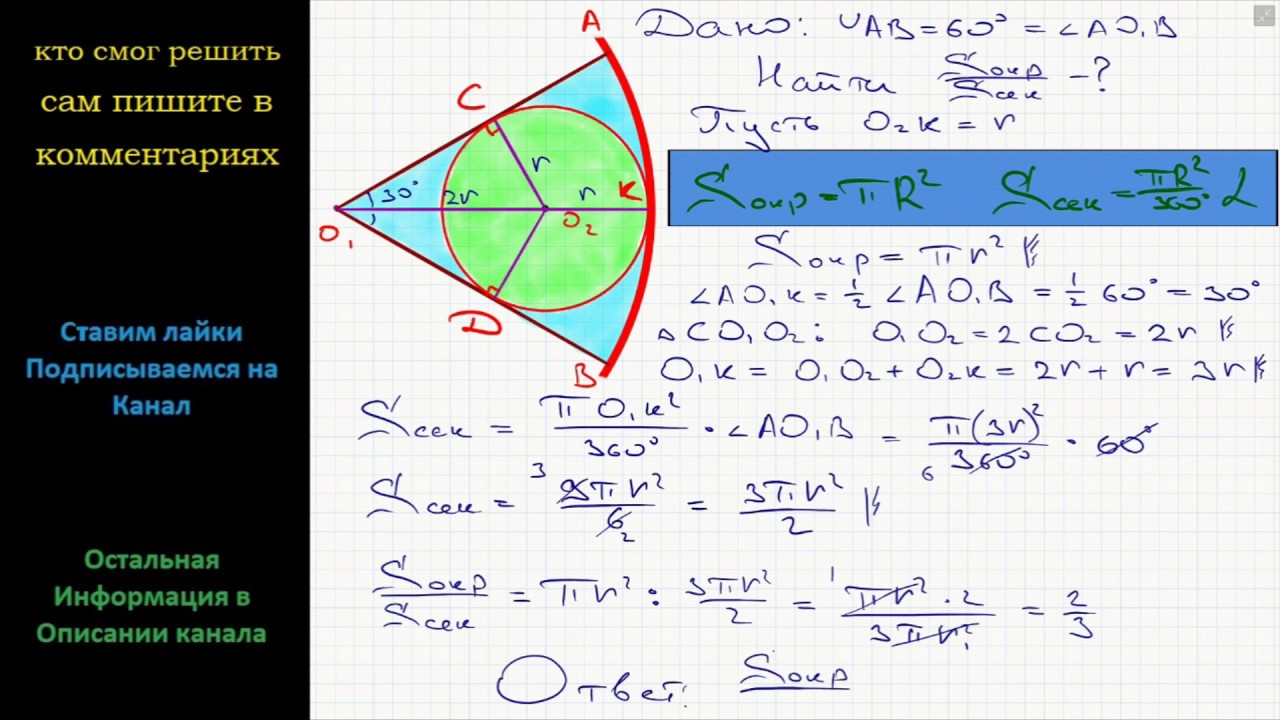 кто смог решить
сам пишите в
комментариях
Ставим лайки
Подписываемся на
Канал
Остальная
Информация в
Описании канала
A
C
30°
2r
r
r
K
O₁
O₂
D
B
Дано: ◡AB = 60° = ∠AO₁B
Найти Sокр/Sсек - ?
Пусть O₂K = r
Sокр = πR² Sсек = πR²/360° α
Sокр = πr²
∠AO₁K = 1/2 ∠AO₁B = 1/2 60° = 30°
△CO₁O₂: O₁O₂ = 2CO₂ = 2r
O₁K = O₁O₂ + O₂K = 2r + r = 3r
Sсек = πO₁K²/360° · ∠AO₁B = π(3r)²/360° · 60°
6
Sсек = 9πr²/6 = 3πr²/2
3
2
Sокр/Sсек = πr² : 3πr²/2 = πr²·2/3πr² = 2/3
1
1
Ответ: Sокр